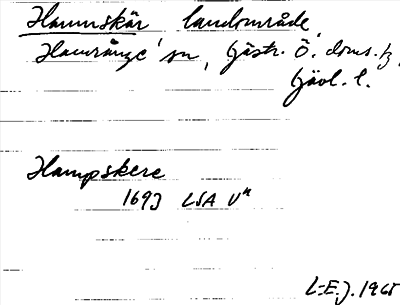 Hamnskär landområde,
Hamrånge sn, Gästr. Ö. doms.
Gävl. l.
Hampskere
1693 LSA V
L-E.J. 1965